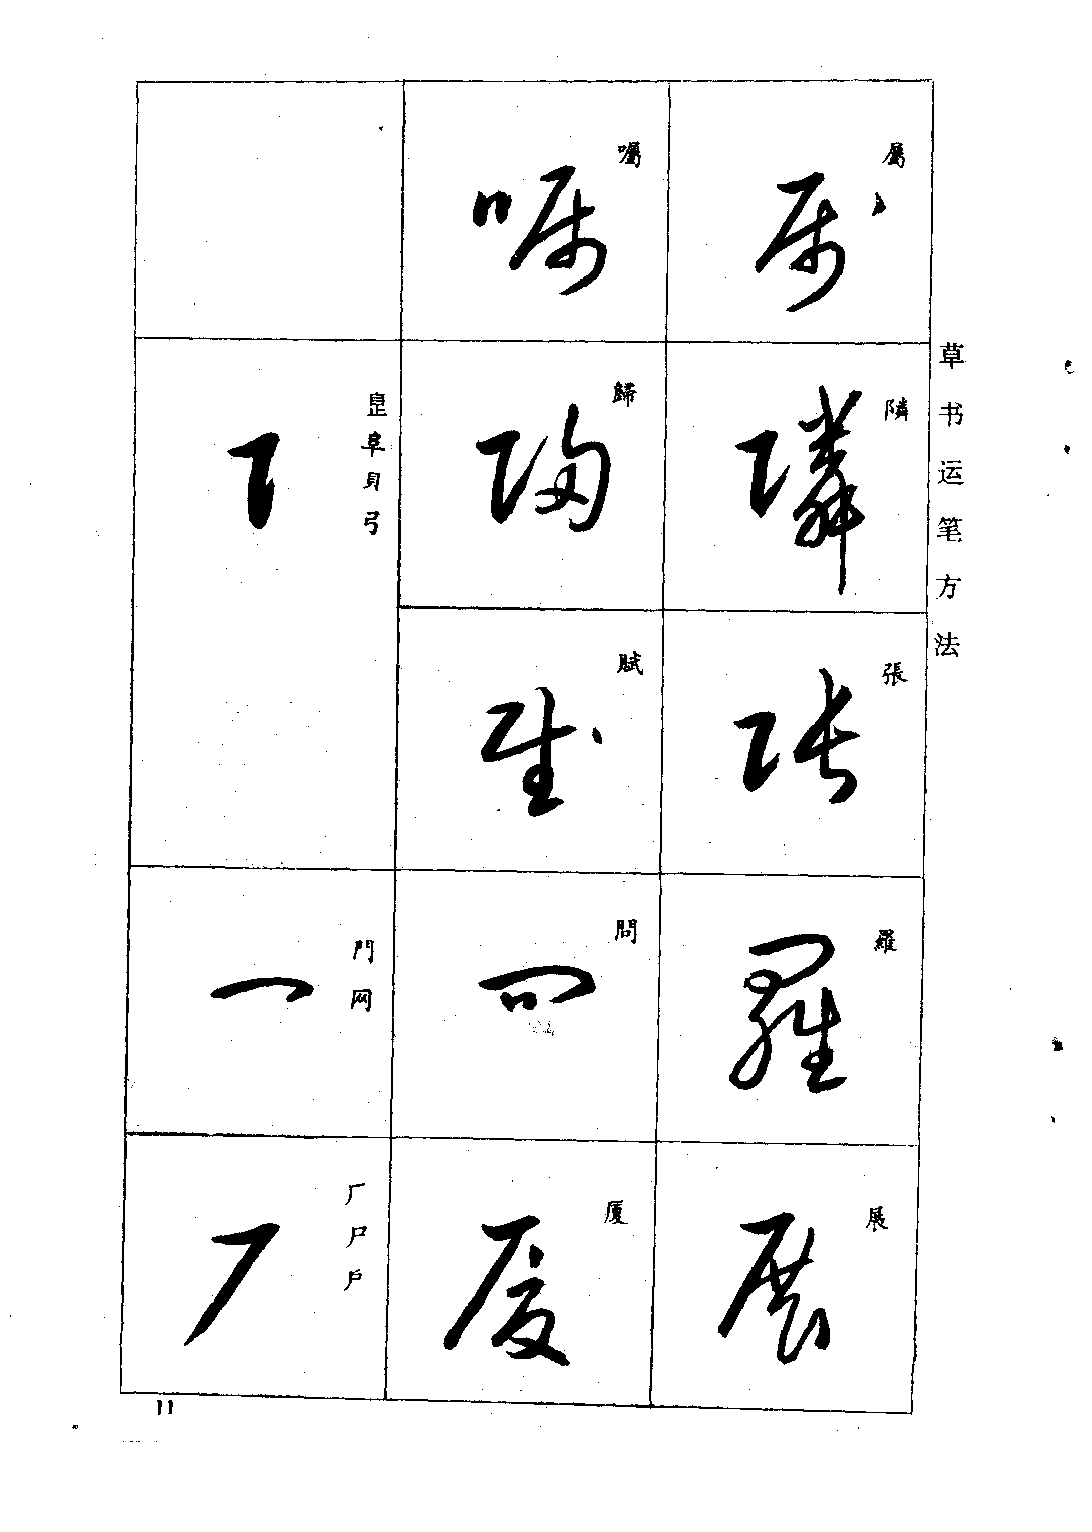 草书运笔方法
屬
隣
張
羅
展
囑
歸
賦
問
厦
阜貝弓
門网
厂尸户
11